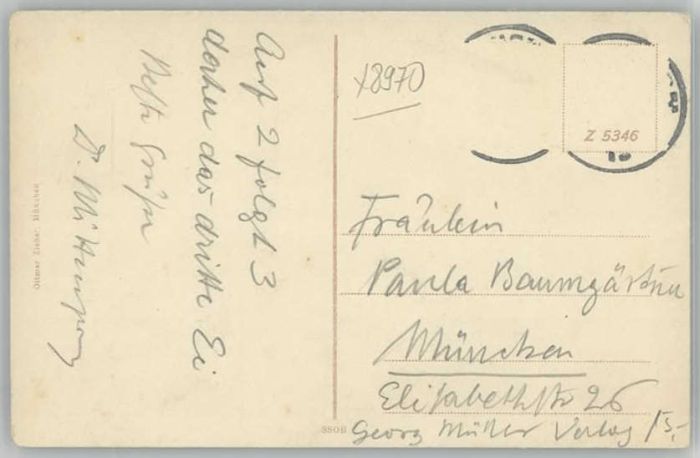 Auf 2 folgt 3
daher das dritte Ei
Beste Grüße
D.
Ottmar Zieher, München
x8970
Z 5346
Fräulein
Paula Baumgärtner
München
Elisabethstr 26
Georg Müller Verlag